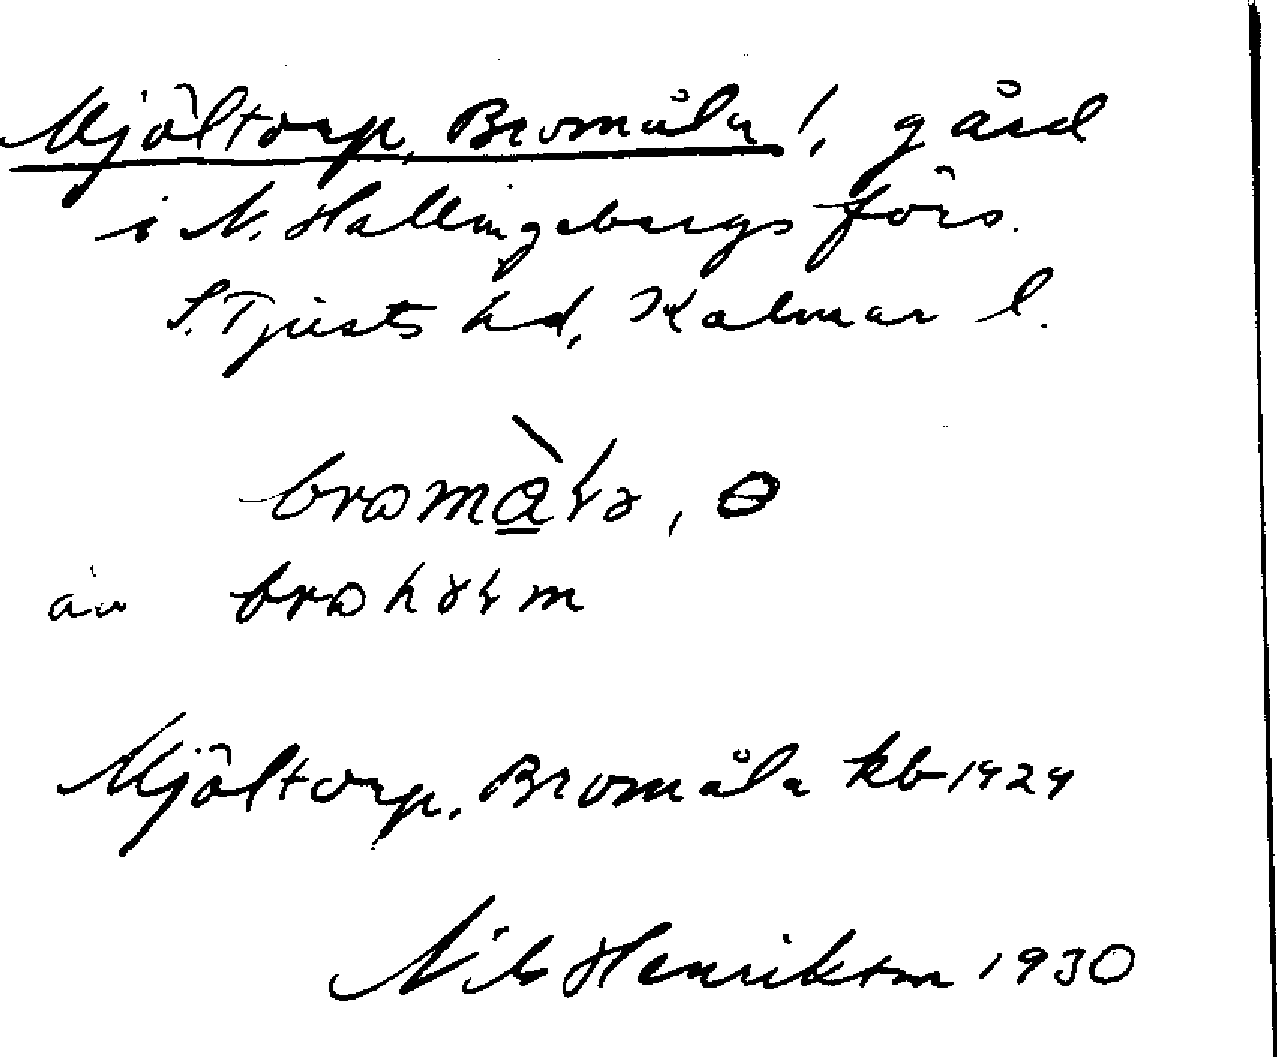 Mjöltorp, Bromåla !, gård
i N. Hallingebergs förs.
S. Tjusts hd, Kalmar l.
även
Mjöltorp, Bromåla kb 1929
Nils Henrikson 1930